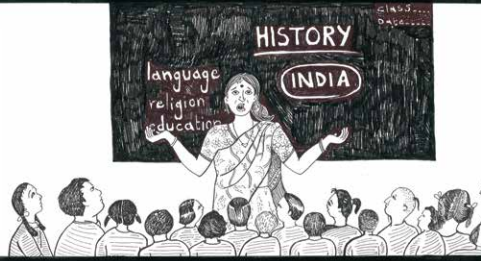 class....
Date:....
HISTORY
INDIA
language
religion
education